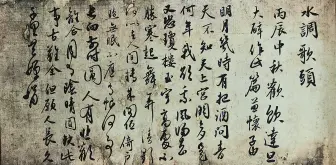 水調歌頭
丙辰中秋歡飲達旦
大醉作此篇兼懷子由
明月幾時有把酒問青
天不知天上宮闕今夕是
何年我欲乘風歸去
又恐瓊樓玉宇高處不
勝寒起舞弄清影
何似在人間轉朱閣低綺戶
照無眠不應有恨何事
長向別時圓人有悲歡
離合月有陰晴圓缺此
事古難全但願人長久
千里共嬋娟